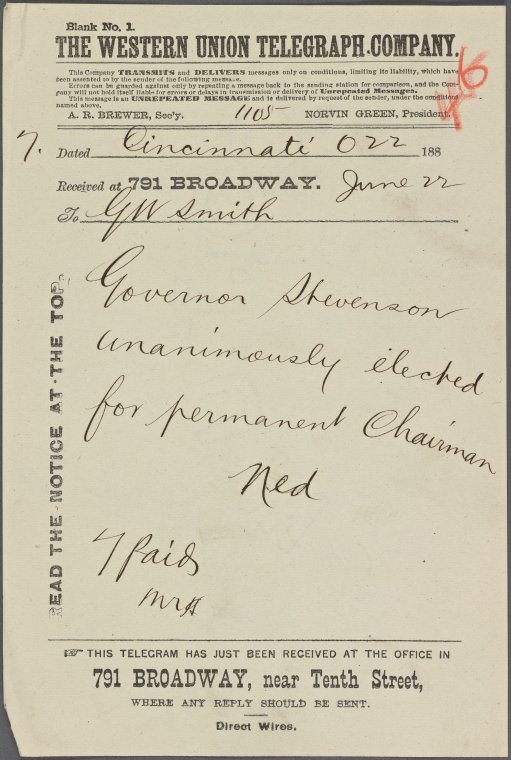 Blank No. 1.
THE WESTERN UNION TELEGRAPH COMPANY.
This Company TRANSMITS and DELIVERS messages only on conditions, limiting its liability, which have
been assented to by the sender of the following message.
Errors can be guarded against only by repeating a message back to the sending station for comparison, and the Com-
pany will not hold itself liable for errors or delays in transmission or delivery of Unrepeated Messages.
This message is an UNREPEATED MESSAGE and is delivered by request of the sender, under the conditions
named above.
A. R. BREWER, Sec'y. 1105 NORVIN GREEN, President.
7. Dated Cincinnati O 22 188
Received at 791 BROADWAY. June 22
To G W Smith
Governor Stevenson
unanimously elected
for permanent Chairman
Ned
7 Paid
READ THE NOTICE AT THE TOP.
☞ THIS TELEGRAM HAS JUST BEEN RECEIVED AT THE OFFICE IN
791 BROADWAY, near Tenth Street,
WHERE ANY REPLY SHOULD BE SENT.
Direct Wires.